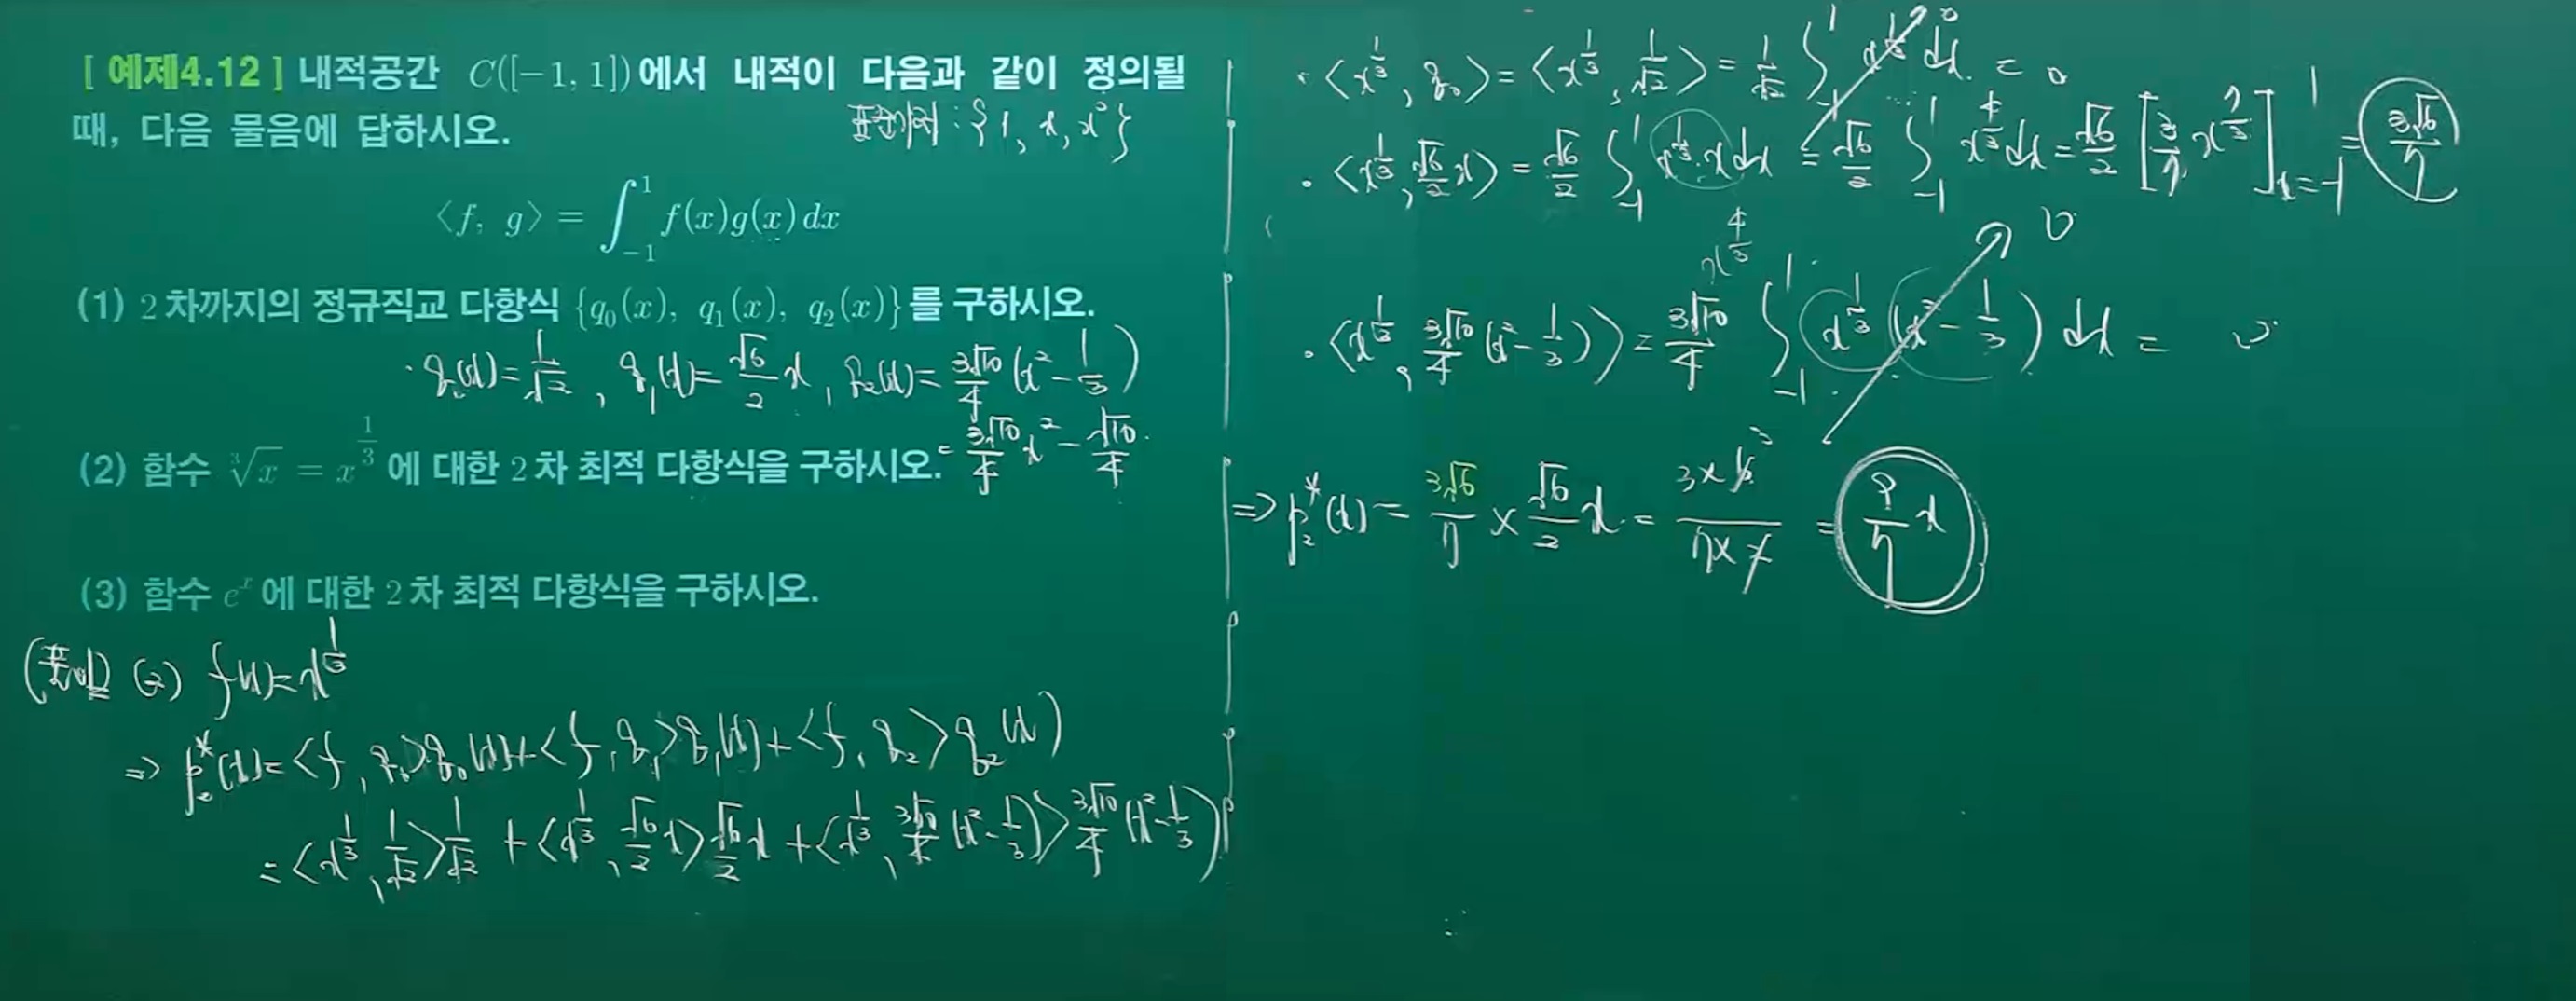 [ 예제4.12 ] 내적공간 C([-1, 1])에서 내적이 다음과 같이 정의될
때, 다음 물음에 답하시오.
표준기저 : {1, x, x²}
⟨f, g⟩ = ∫_{-1}^{1} f(x)g(x) dx
(1) 2차까지의 정규직교 다항식 {q₀(x), q₁(x), q₂(x)}를 구하시오.
· q₀(x) = 1/√2 , q₁(x) = √6/2 x , q₂(x) = 3√10/4 (x² - 1/3)
= 3√10/4 x² - √10/4
(2) 함수 ∛x = x^{1/3} 에 대한 2차 최적 다항식을 구하시오.
(3) 함수 e^x 에 대한 2차 최적 다항식을 구하시오.
(풀이) (2) f(x) = x^{1/3}
⇒ p₂*(x) = <f, q₀>q₀(x) + <f, q₁>q₁(x) + <f, q₂>q₂(x)
= <x^{1/3}, 1/√2> 1/√2 + <x^{1/3}, √6/2 x> √6/2 x + <x^{1/3}, 3√10/4 (x² - 1/3)> 3√10/4 (x² - 1/3)
· <x^{1/3}, q₀> = <x^{1/3}, 1/√2> = 1/√2 ∫_{-1}^{1} x^{1/3} dx = 0
· <x^{1/3}, √6/2 x> = √6/2 ∫_{-1}^{1} x^{1/3} · x dx = √6/2 ∫_{-1}^{1} x^{4/3} dx = √6/2 [3/7 x^{7/3}]_{x=-1}^{1} = 3√6/7
x^{4/3}
· <x^{1/3}, 3√10/4 (x² - 1/3)> = 3√10/4 ∫_{-1}^{1} x^{1/3} (x² - 1/3) dx = 0
⇒ p₂*(x) = 3√6/7 × √6/2 x = 3×6/7×2 = 9/7 x